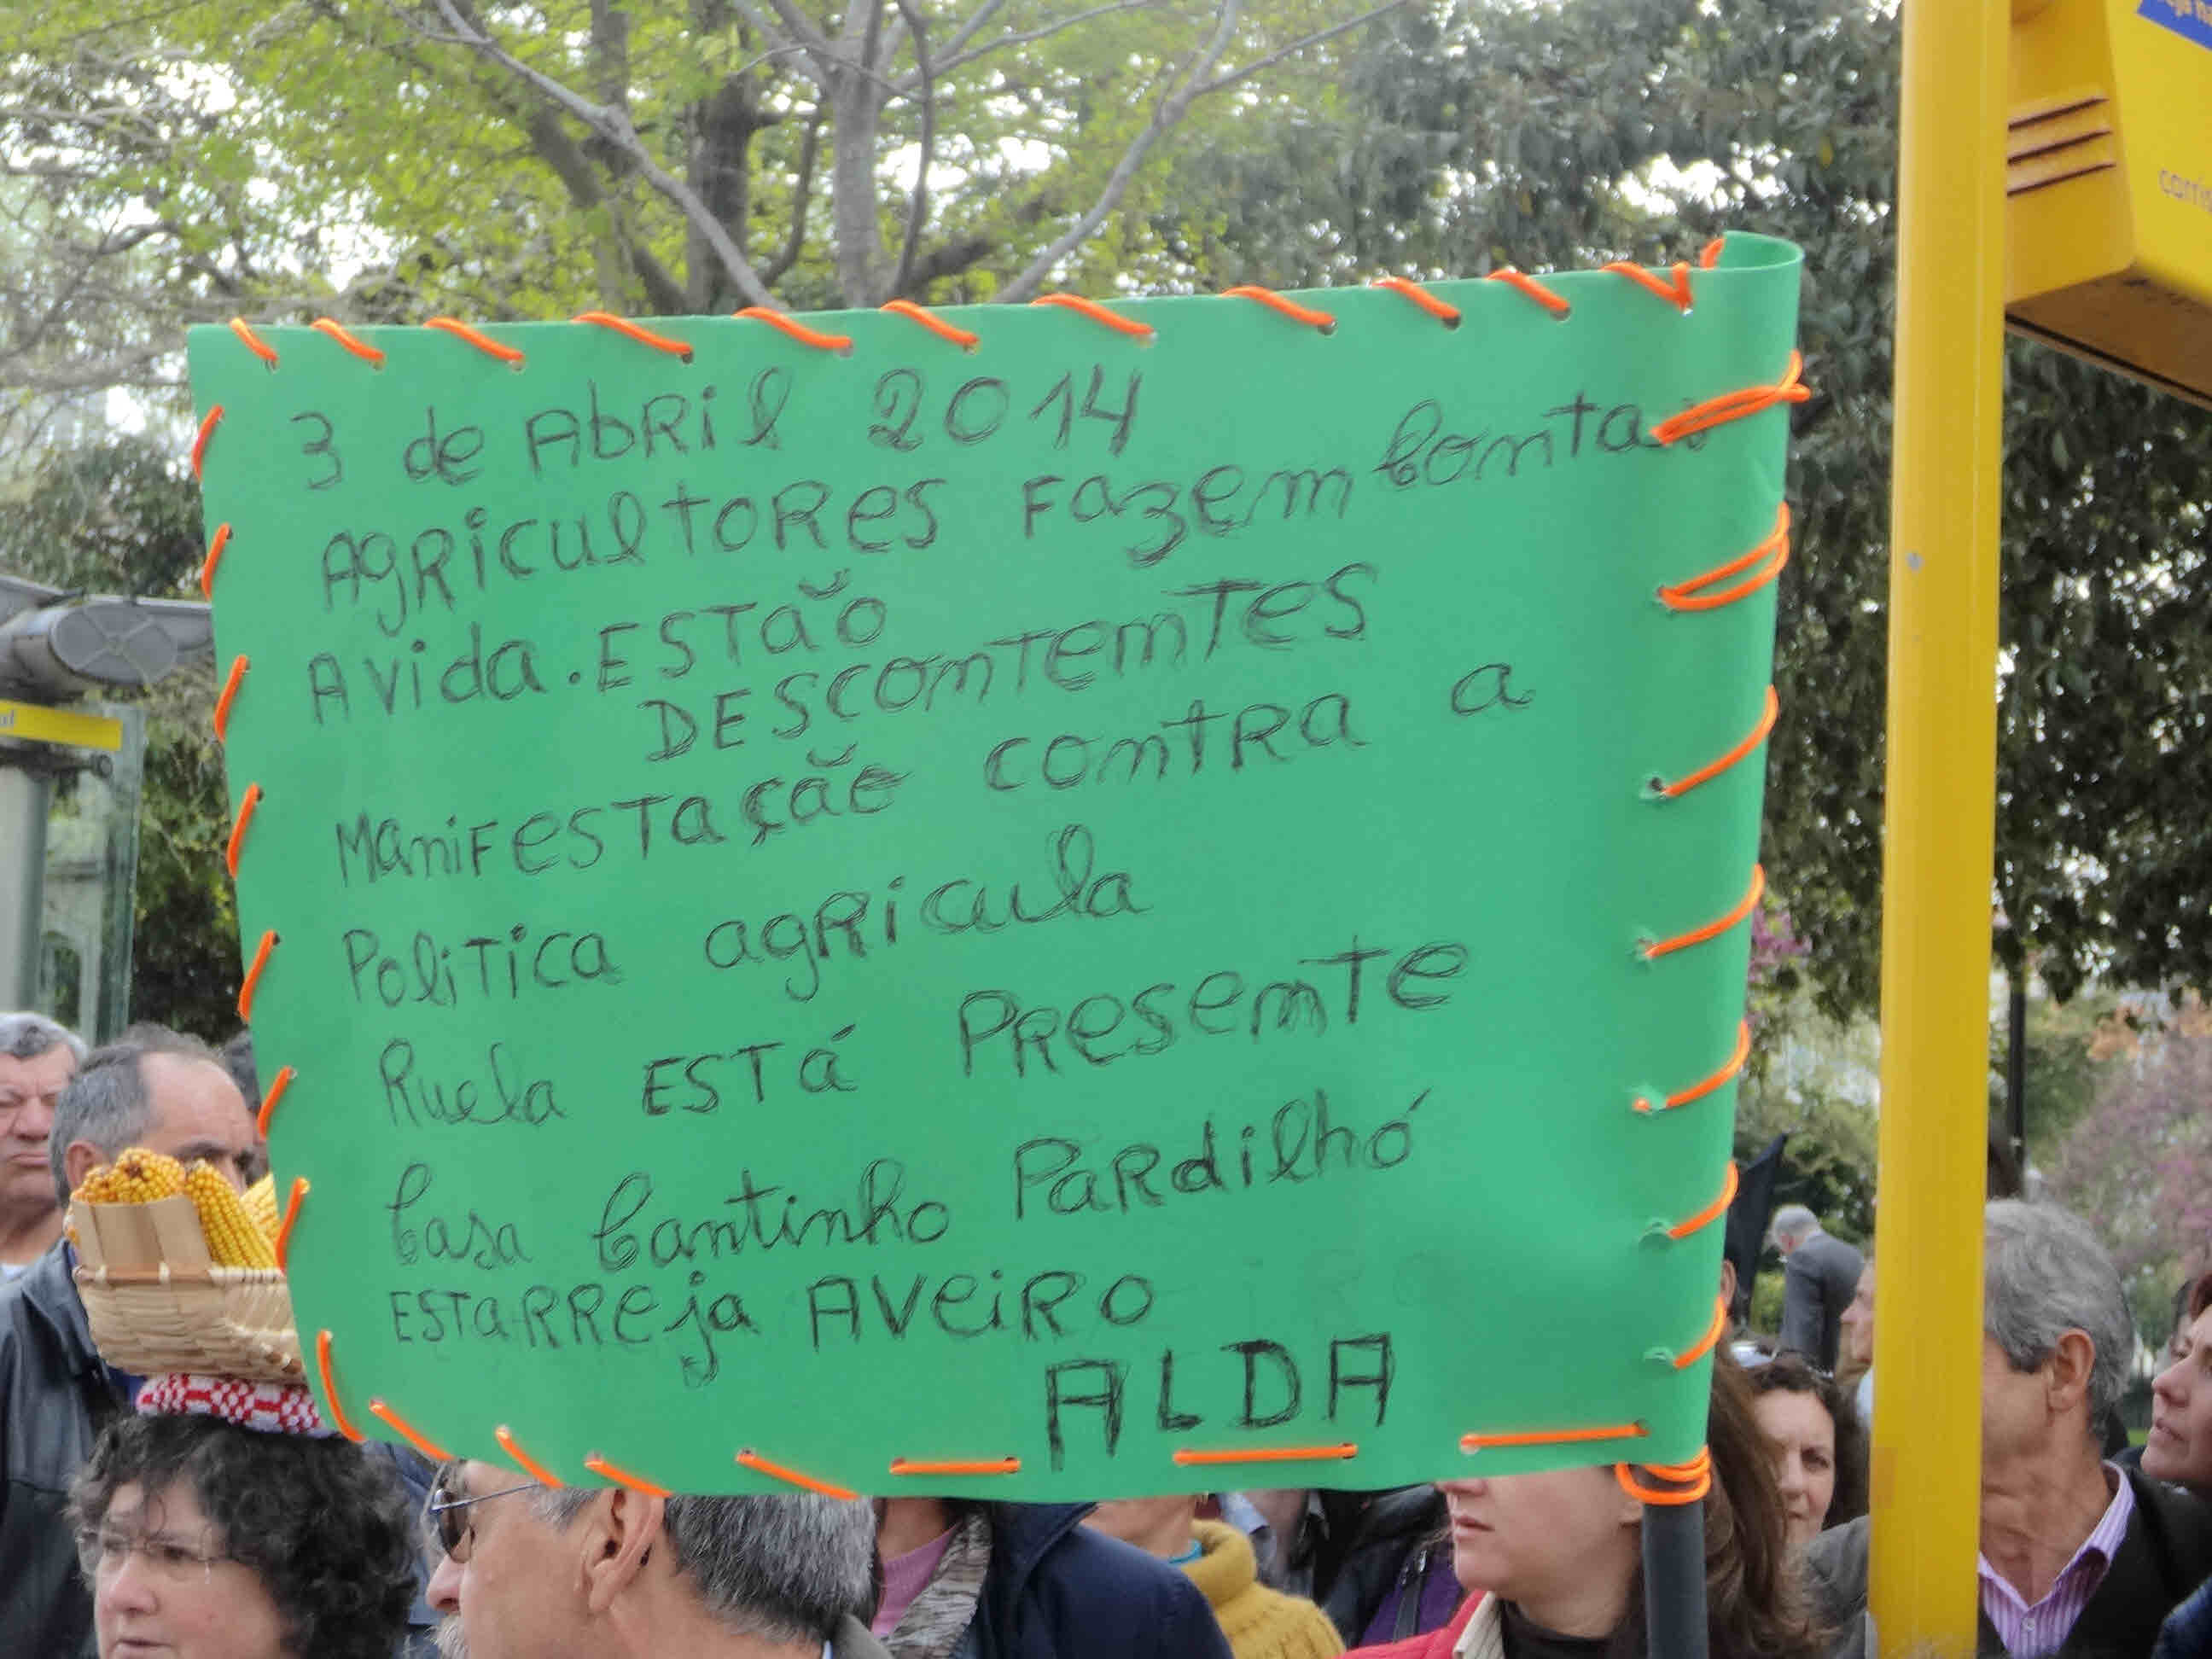 3 de Abril 2014
Agricultores Fazem Contas
A vida. Estão
Descomtemtes
Manifestação comtra a
Politica agricula
Ruela está Presemte
Casa Cantinho Pardilhó
Estarreja Aveiro
ALDA